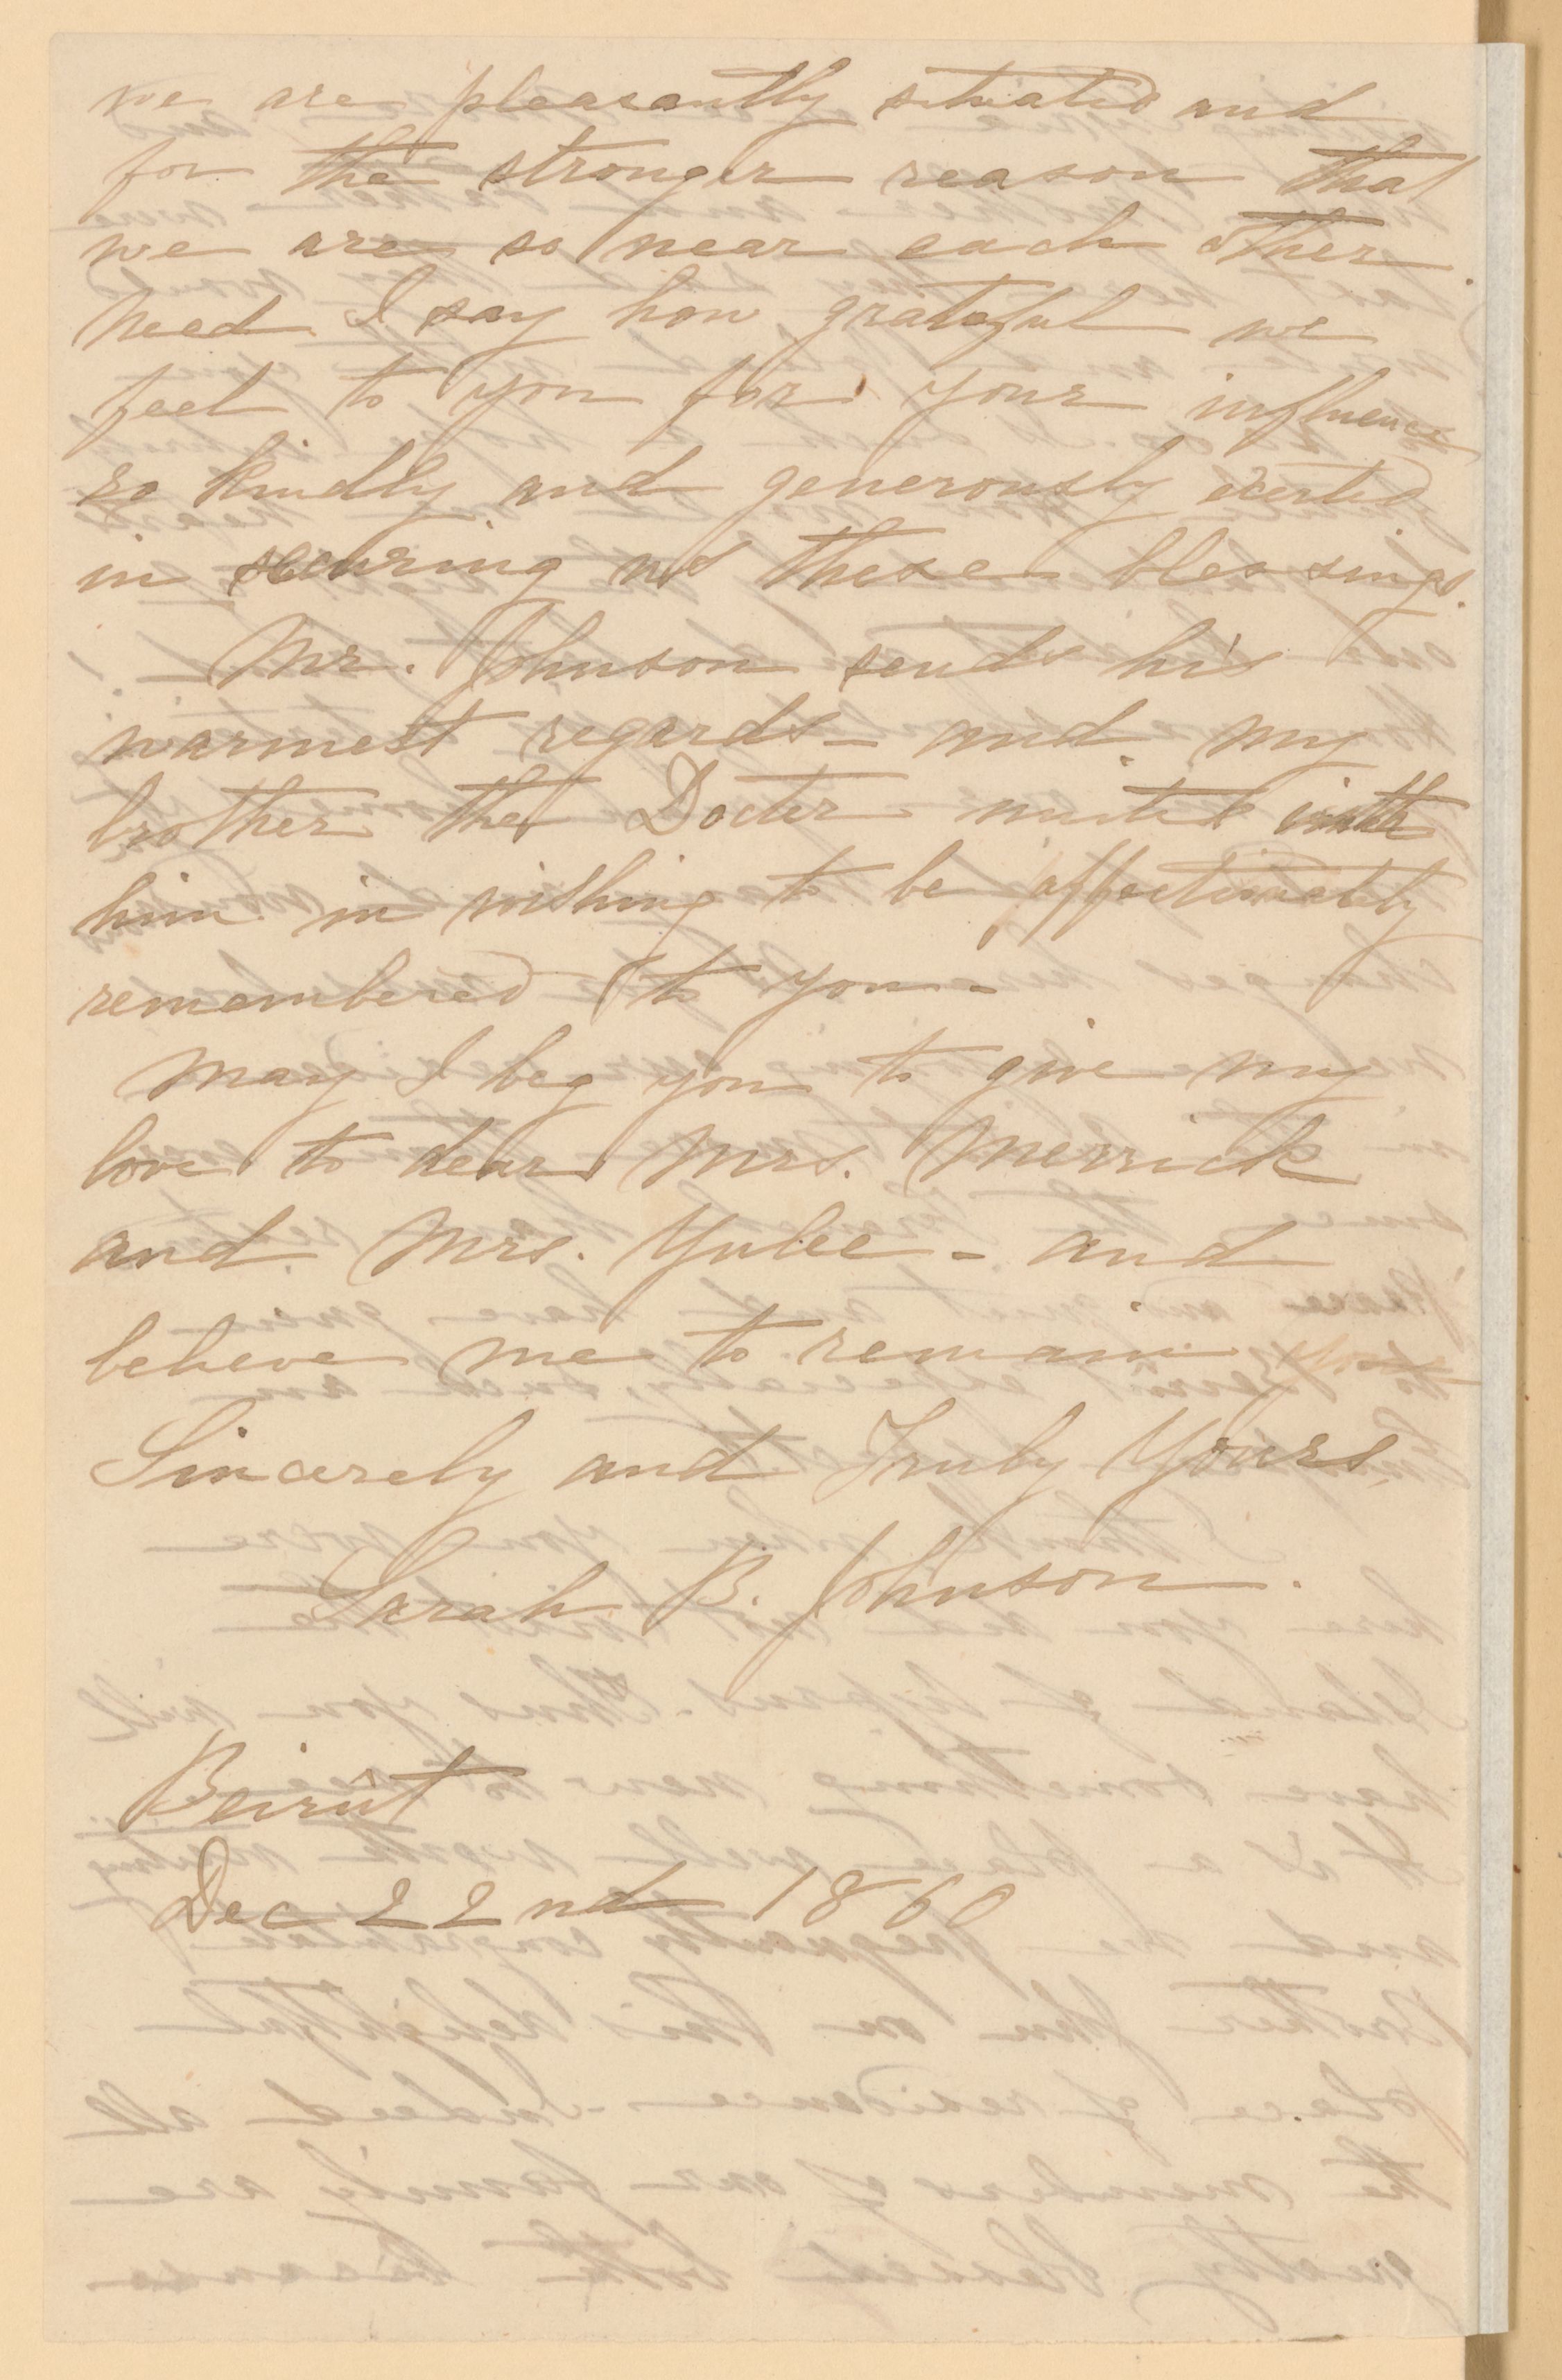 we are pleasantly situated and
for the stronger reason that
we are so near each other.
Need I say how grateful we
feel to you for your influence
so kindly and generously exerted
in securing us these blessings.
Mr. Johnson sends his
warmest regards - and my
brother the Docter unites with
him in wishing to be affectionately
remembered to you -
May I beg you to give my
love to dear Mrs. Merrick
and Mrs. Yulee - and
believe me to remain
Sincerely and Truly Yours,
Sarah B. Johnson.
Beirût
Dec 22nd 1860